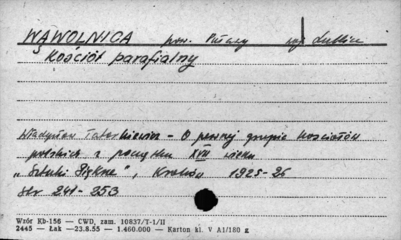 WĄWOLNICA pow. Puławy woj. Lublin
Kościół parafialny
Władysław Tatarkiewicz - O pewnej grupie kościołów
polskich z początku XVII wieku
„Sztuki Piękne", Kraków 1925-26
str 241-253
Wzór Kb-156 — CWD, zam. 10837/T-1/II
2445 — Łak —23.8.55 — 1.460.000 — Karton kl. V A1/180 g